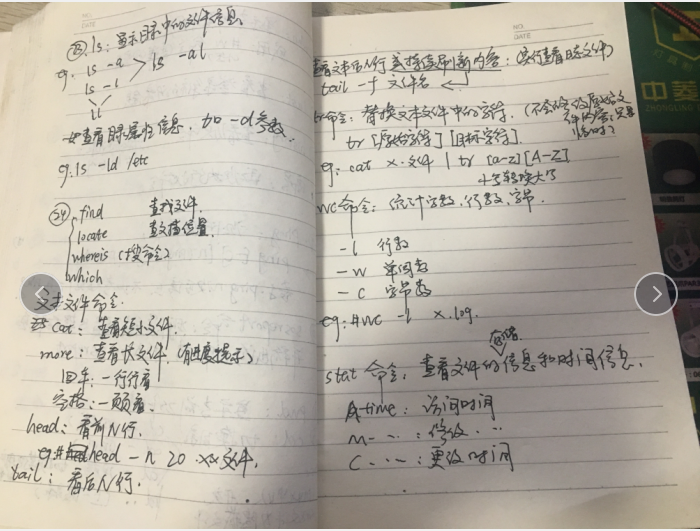 NO.
DATE
㉓. ls: 显示目录中的文件信息
eg. ls -a > ls -al
ls -l
↓
ll
如查看目录属性信息, 加 -d 参数.
eg. ls -ld /etc
㉔ find 查找文件.
locate 查文档位置.
whereis (搜命令)
which
文本文件命令.
cat: 查看短小文件.
more: 查看长文件. (有进度提示)
回车: 一行行看
空格: 一页看.
head: 看前N行.
eg: # head -n 20 xx文件.
tail: 看后N行.
NO.
DATE
查看文本后N行或持续刷新内容: (实行查看日志文件)
tail -f 文件名
tr命令: 替换文本文件中的字符. (不会修改原始文件内容,
tr [原始字符] [目标字符].
eg: cat x.文件 | tr [a-z] [A-Z]
小写转换大写
wc命令: 统计字数. 行数. 字节.
-l 行数
-w 单词数
-c 字节数
eg: # wc -l x.log.
存储
stat 命令: 查看文件的信息和时间信息.
A-time: 访问时间
M- ‥: 修改 ‥
C ‥‥: 更改时间
中菱
ZHONGLING